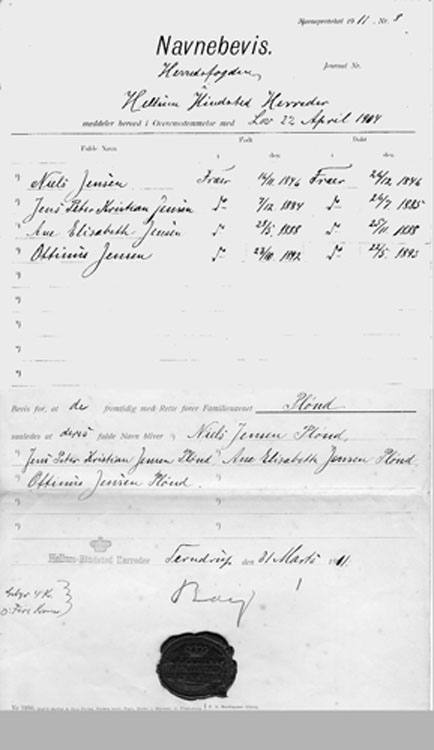 Navneprotokol 1911, Nr. 8
Navnebevis.
Herredsfogden,
Journal Nr.
Hellum Hindsted Herreder
meddeler herved i Overensstemmelse med Lov 22 April 1904
Fulde Navn Født i den Døbt i den
1) Niels Jensen Fræer 14/11 1846 Fræer 26/12 1846
2) Jens Peter Kristian Jensen do 7/12 1884 do 26/7 1885
3) Ane Elisabeth Jensen do 1888 do 25/11 1888
4) Ottinus Jensen do 23/10 1892 do 22/5 1893
5)
6)
7)
8)
9)
Bevis for, at de fremtidig med Rette fører Familienavnet Plønd
saaledes at deres fulde Navn bliver 1) Niels Jensen Plønd,
Jens Peter Kristian Jensen Plønd, Ane Elisabeth Jensen Plønd,
Ottinus Jensen Plønd.
Hellum-Hindsted Herreder Terndrup den 31 Marts 1911.
Gebyr 4 Kr.
Fire Kroner